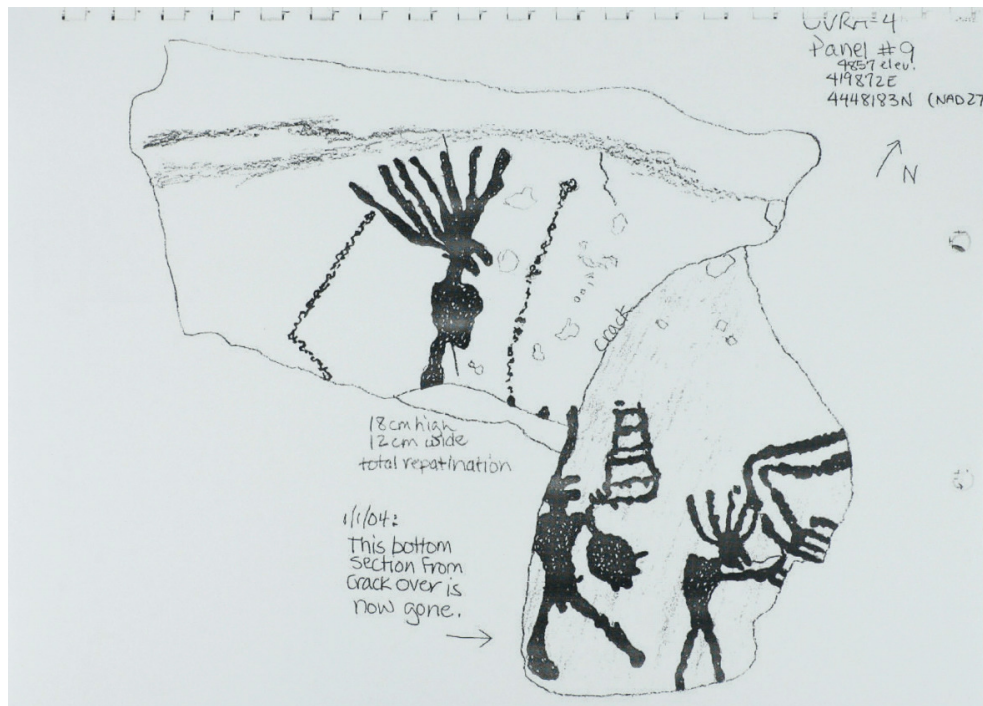 UVRA-4
Panel #9
4857 elev.
419872E
4448183N (NAD27
N
crack
18cm high
12cm wide
total repatination
1/1/04:
This bottom
section from
crack over is
now gone.